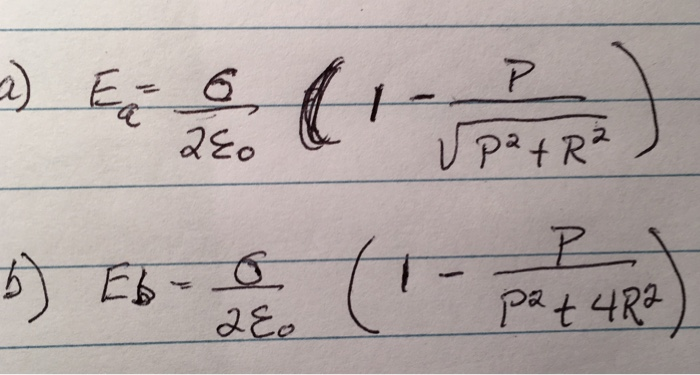 a) E_a = σ/2ε₀ (1 - P/√(P² + R²))
b) Eb = σ/2ε₀ (1 - P/(P² + 4R²))